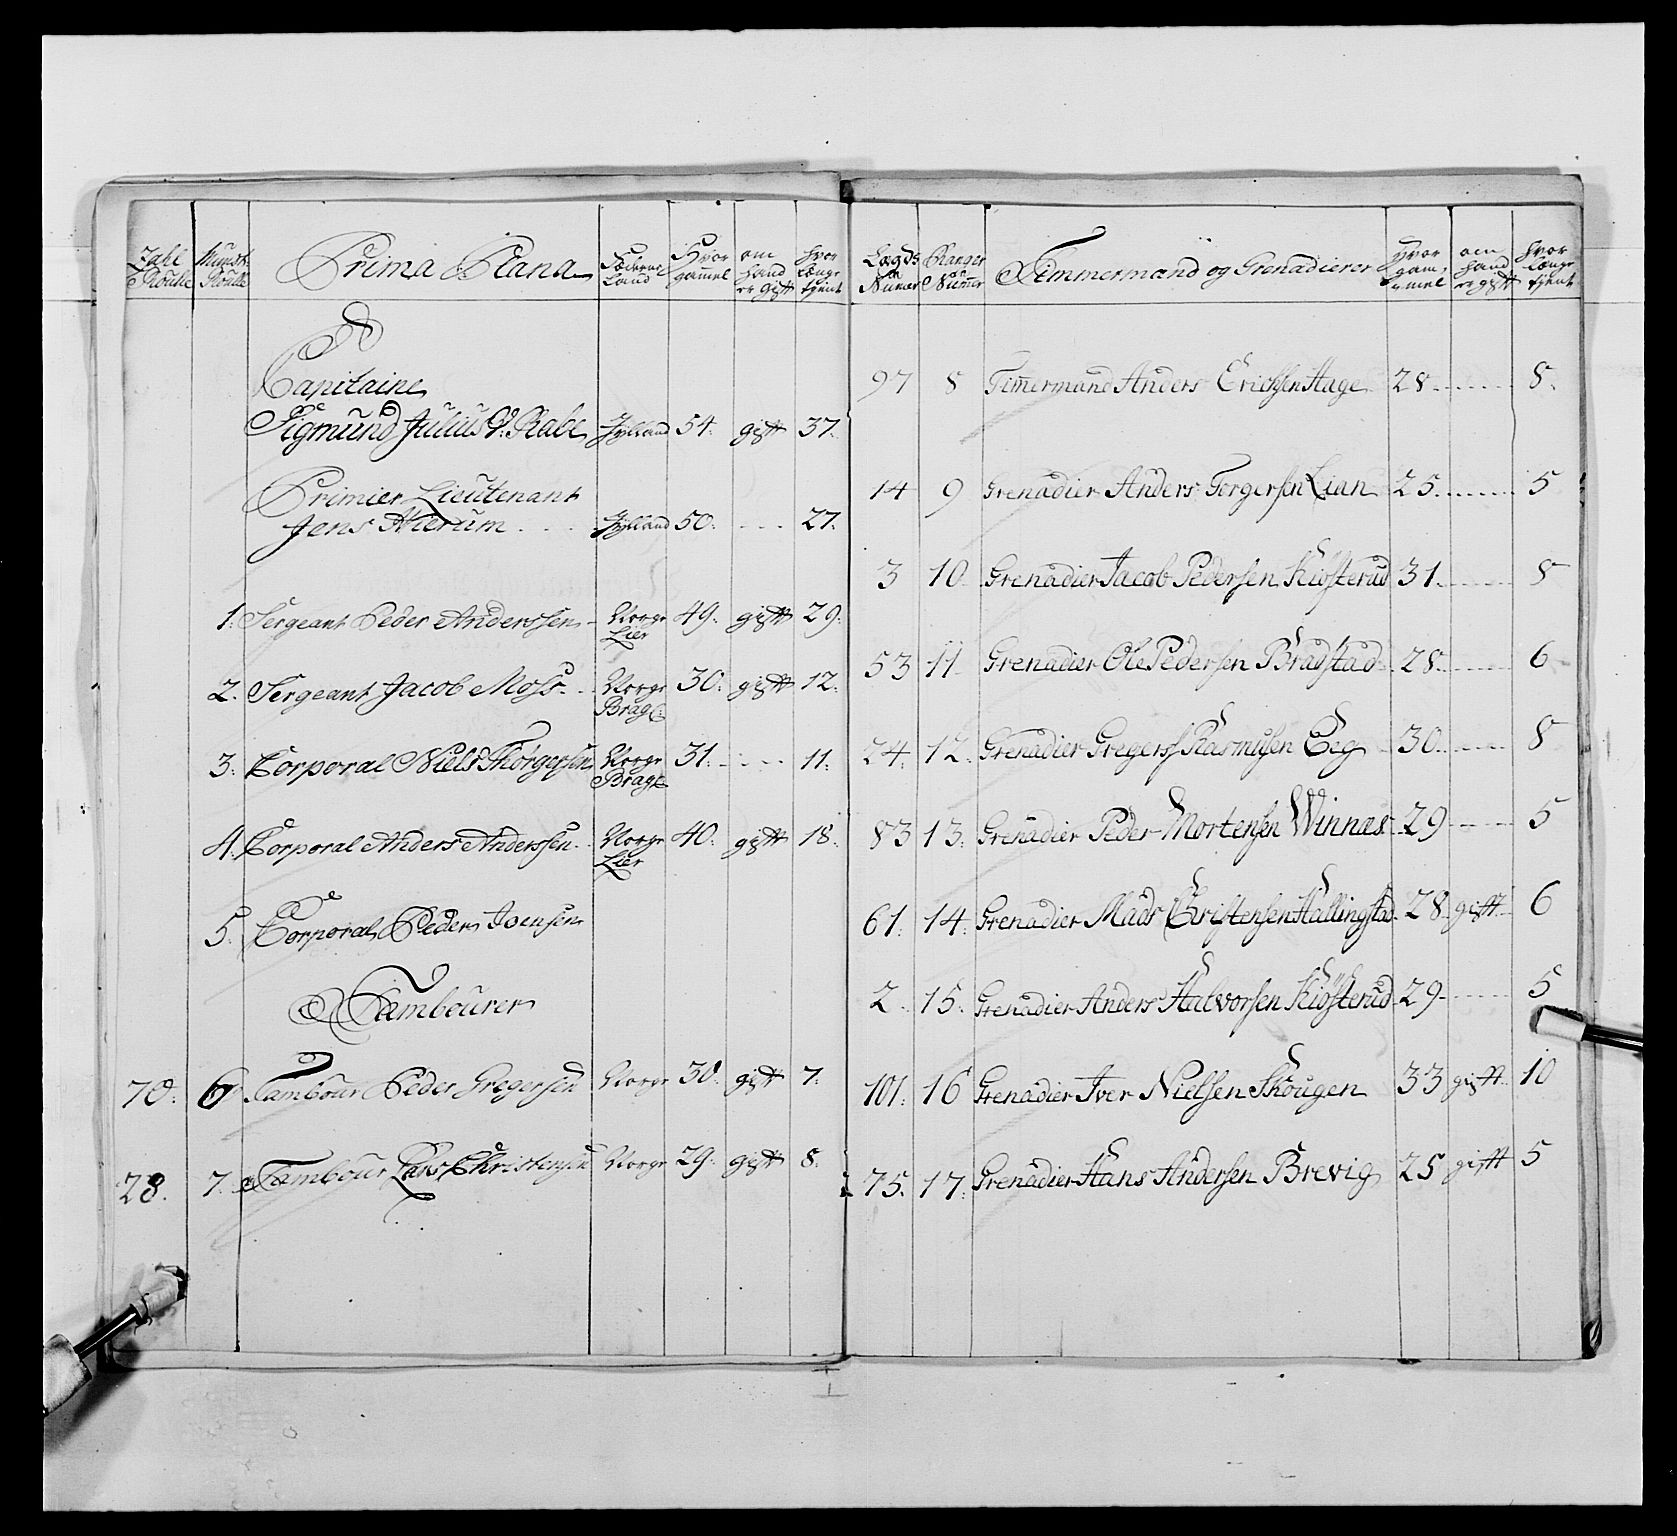 Zahl Roulle | Munst. Roulle | Prima Plana | Föderne Land | Hvor gammel | om hand er gift | hvor længe tjent
Capitaine
Sigmund Julius V: Rabe Jylland 54. gift 37.
Primier Lieutenant
Jens Hierum . . . Jylland 50. . . . 27.
1. Sergeant Peder Anderssen Norge Lier 49. gift 29.
2. Sergeant Jacob Moss Norge Brag: 30. gift 12.
3. Corporal Niels Thorgersen Norge Brag: 31. . . . 11.
4. Corporal Anders Anderssen Norge Lier 40. gift 18.
5. Corporal Peder Joensen
Tambourer
70. 6 Tambour Peder Gregersen Norge 30. gift 7.
28. 7. Tambour Lars Christensen Norge 29. gift 8.
Lægds Numer | Ranger Numer | Timmermand og Grenadierer | Hvor gammel | om hand er gift | hvor længe tjent
97 8 Timermand Anders Erichsen Hage 28. . . . 8.
14 9 Grenadier Anders Torgersen Lian 25. . . . 5
3 10 Grenadier Jacob Pedersen Kiosterud 31. . . . 8
53 11 Grenadier Ole Pedersen Bradstad 28. . . . 6
24. 12. Grenadier Gregers Rasmusen Eeg 30. . . . 8
83 13. Grenadier Peder Mortensen Winnæs 29 . . . 5
61. 14. Grenadier Mads Christensen Hallingstad 28 gift 6
2 15. Grenadier Anders Halvorsen Kiosterud 29 . . . 5
101. 16 Grenadier Iver Nielsen Skougen 33 gift 10
75. 17. Grenadier Hans Andersen Brevig 25 gift 5